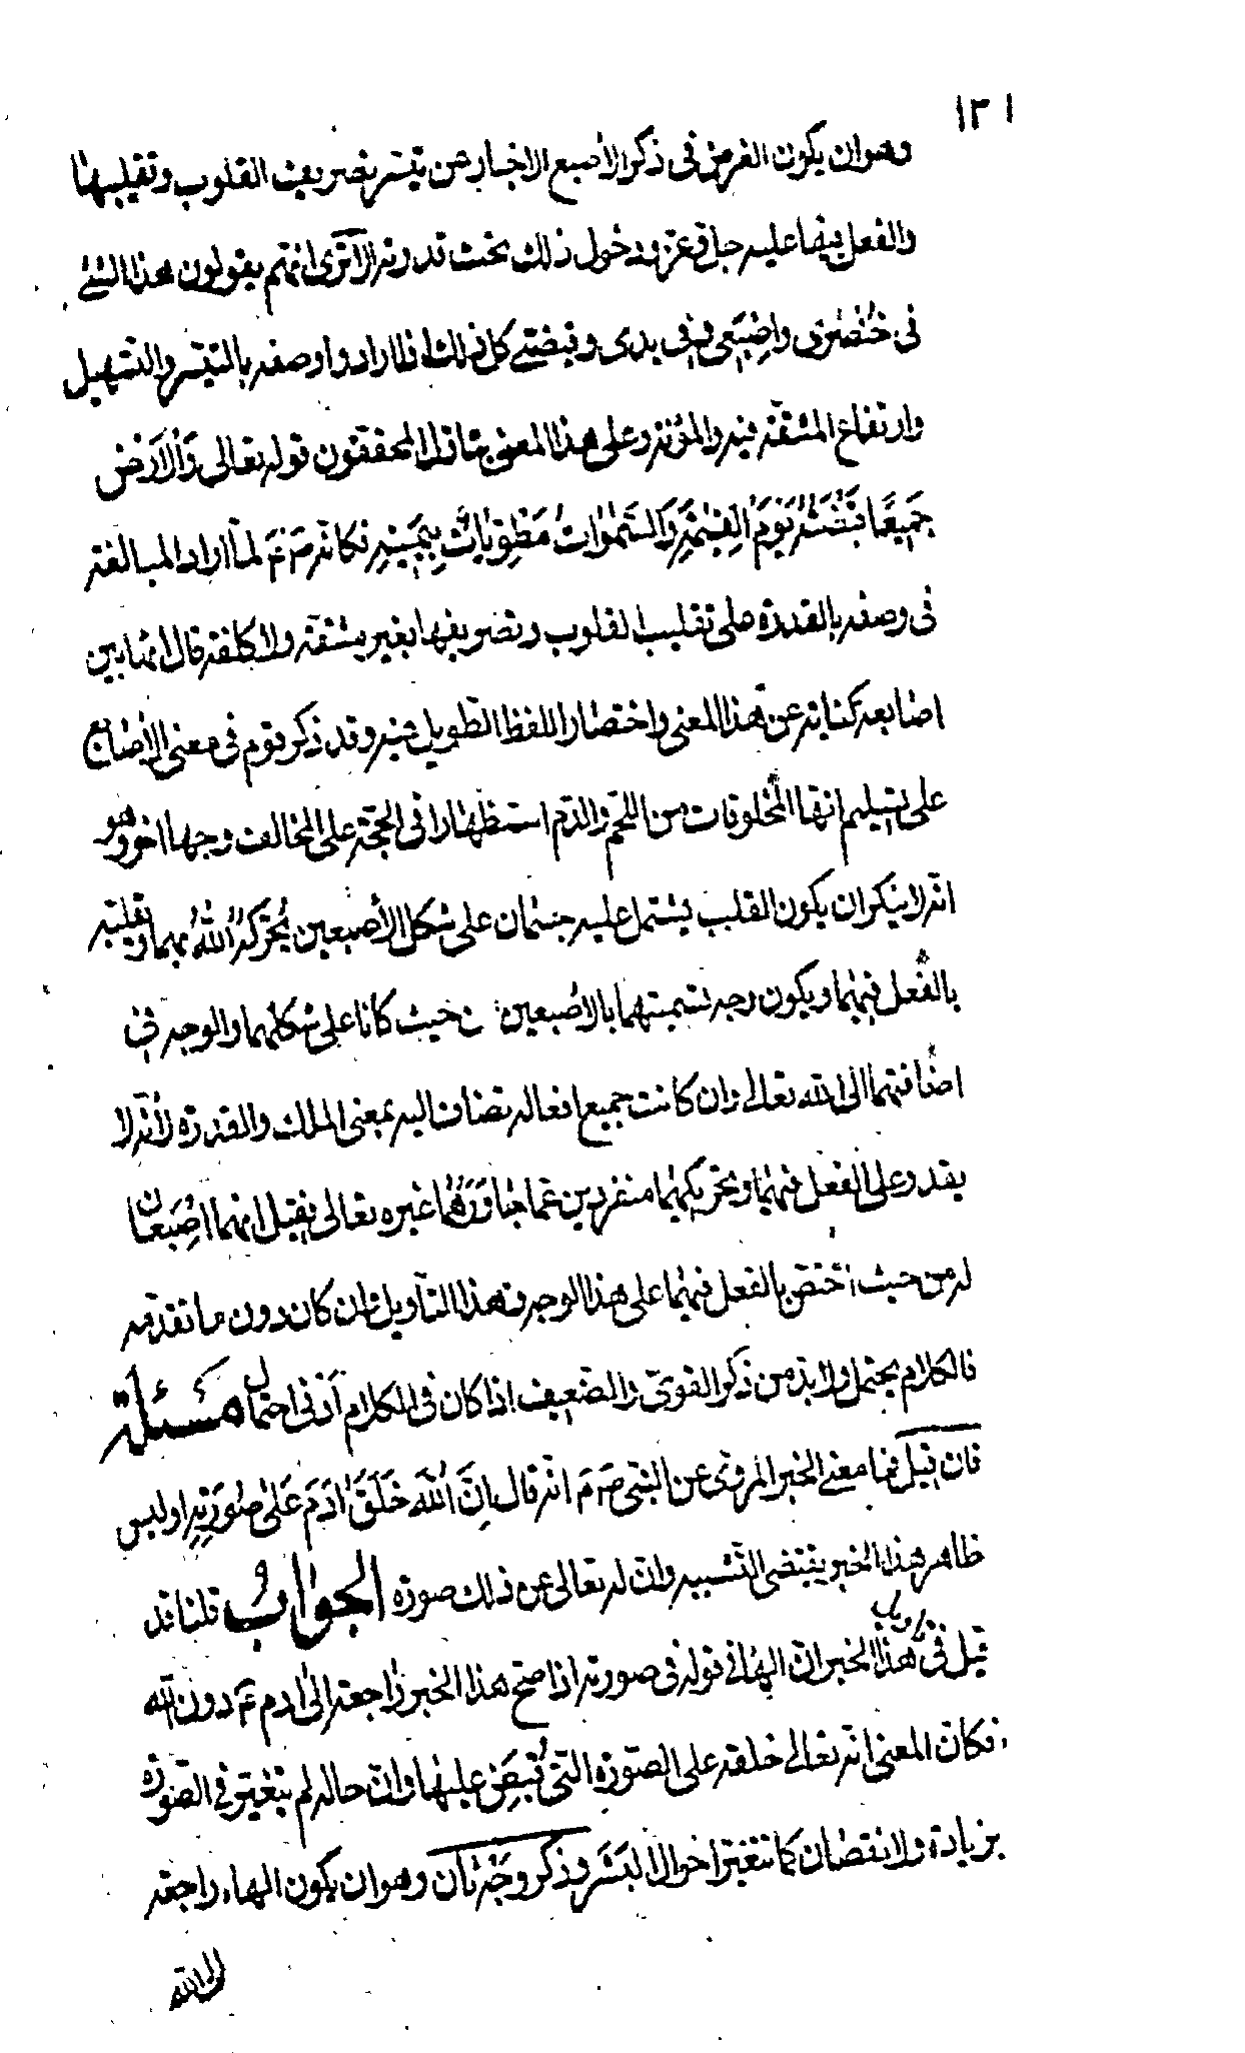 ١٣١
وهو ان يكون الغرض فى ذكر الاصبع الاخبار عن تيسر تصريف القلوب وتقليبها
والفعل فيها عليه جل وعز ودخول ذلك تحت قدرته الا ترى انهم يقولون هذا الشئ
فى خنصرى واصبعى وفى يدى وقبضتى كل ذلك اذا ارادوا وصفه بالتيسر والتسهيل
وارتفاع المشقة فيه والمؤنة وعلى هذا المعنى يتاول المحققون قوله تعالى وَالاَرْض
جَمِيعًا قَبْضَتُهُ يَوْمَ الْقِيٰمَةِ وَالسَّمٰوٰاتُ مَطْوِيّٰاتٌ بِيَمِينِهِ فكانه ص ع لما اراد المبالغة
فى وصفه بالقدرة على تقليب القلوب وتصريفها بغير مشقة ولا كلفة قال انها بين
اصابعه كناية عن هذا المعنى واختصارا للفظ الطويل فيه وقد ذكر قوم فى معنى الاصابع
على تسليم انها المخلوقات من اللحم والدم استظهارا فى الحجة على المخالف وجها اخر وهو
انه لا ينكر ان يكون القلب يشتمل عليه جسمان على شكل الاصبعين يُحَرِّكه اللهُ بهما ويقلبه
بالفعل فيهما ويكون وجه تسميتهما بالاصبعين من حيث كانا على شكلهما والوجه فى
اضافتهما الى الله تعالى وان كانت جميع افعاله تضاف اليه بمعنى الملك والقدرة لانه لا
يقدر على الفعل فيهما وتحريكهما منفردين عما جاورهما غيره تعالى فقيل انهما اصبعان
له من حيث اختص بالفعل فيهما على هذا الوجه وهذا التاويل وان كان دون ما تقدمه
فالكلام يحتمله ولا بد من ذكر القوى والضعيف اذا كان فى الكلام ادنى احتمال مَسْئلة
فان قيل فما معنى الخبر المروى عن النبى ص ع انه قال اِنَّ اللهَ خَلَقَ اٰدَمَ عَلىٰ صُورَتِهِ اوليس
ظاهر هذا الخبر يقتضى التشبيه وان له تعالى عن ذلك صورة الجوابُ قلنا قد
قيل فى تاويل هذا الخبر ان الهاء فى قوله فى صورته اذا صح هذا الخبر راجعة الى ادم ع دون الله
فكان المعنى انه تعالى خلقه على الصورة التى قُبِضَ عليها وان حاله لم يتغير فى الصورة
بزيادة ولا نقصان كما تتغير احوال البشر وذكر وجه ثان وهو ان يكون الهاء راجعة
الى الله